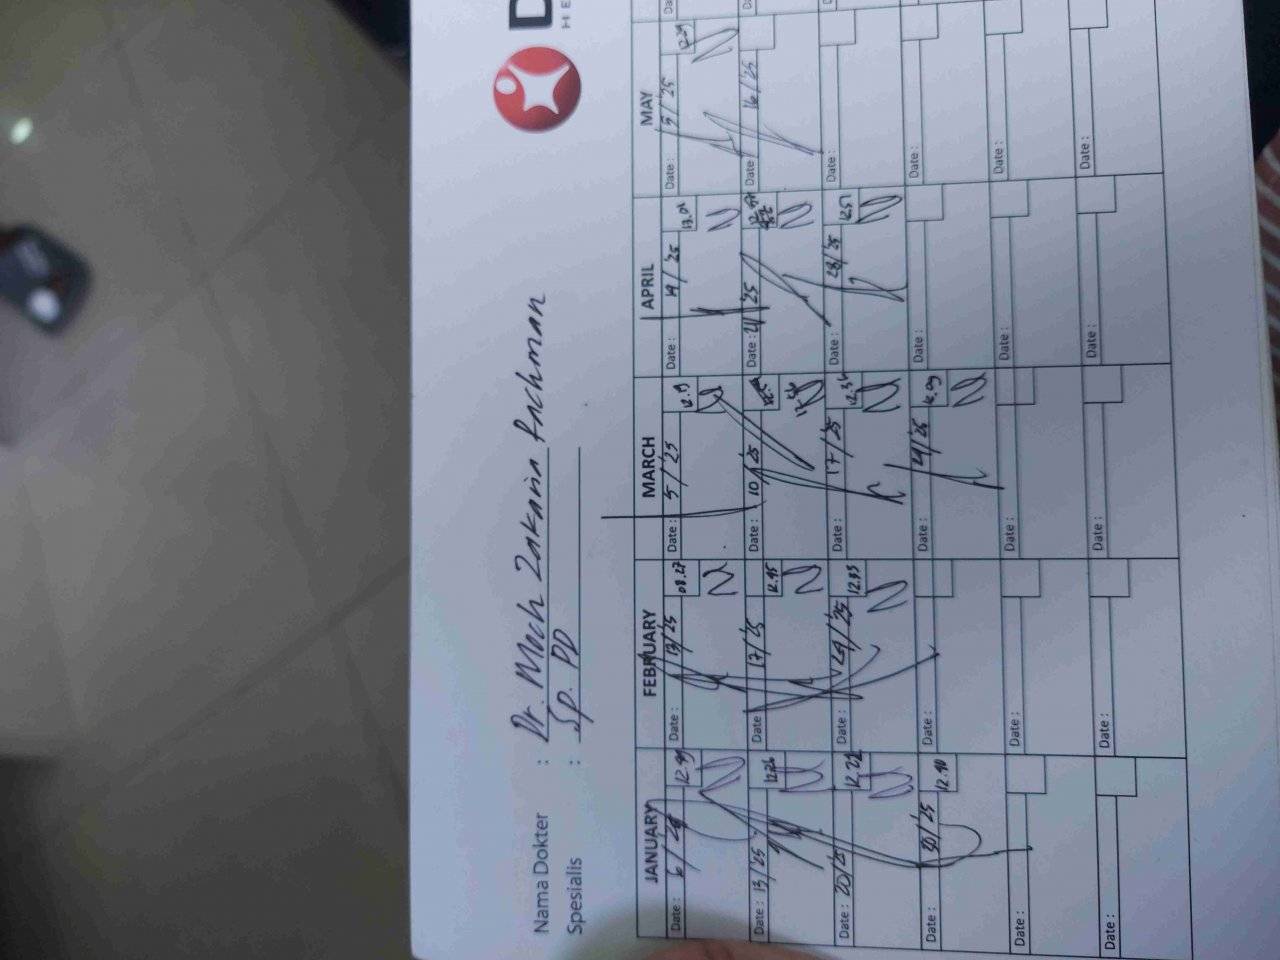 D
HE
Nama Dokter : Dr. Moch Zakaria Rachman
Spesialis : SP. PD
JANUARY FEBRUARY MARCH APRIL MAY
Date : 6/ Date : 13/25 08.27 Date : 5/25 Date : 14/25 13.01 Date : 5/25
Date : 13/25 12.26 Date : 17/25 12.45 Date : 10/25 Date : 21/25 Date : 16/25
Date : 20/25 12.22 Date : 24/25 12.53 Date : 17/25 12.36 Date : 28/25 12.51 Date :
Date : 30/25 12.40 Date : Date : 12.09 Date : Date :
Date : Date : Date : Date : Date :
Date : Date : Date : Date : Date :